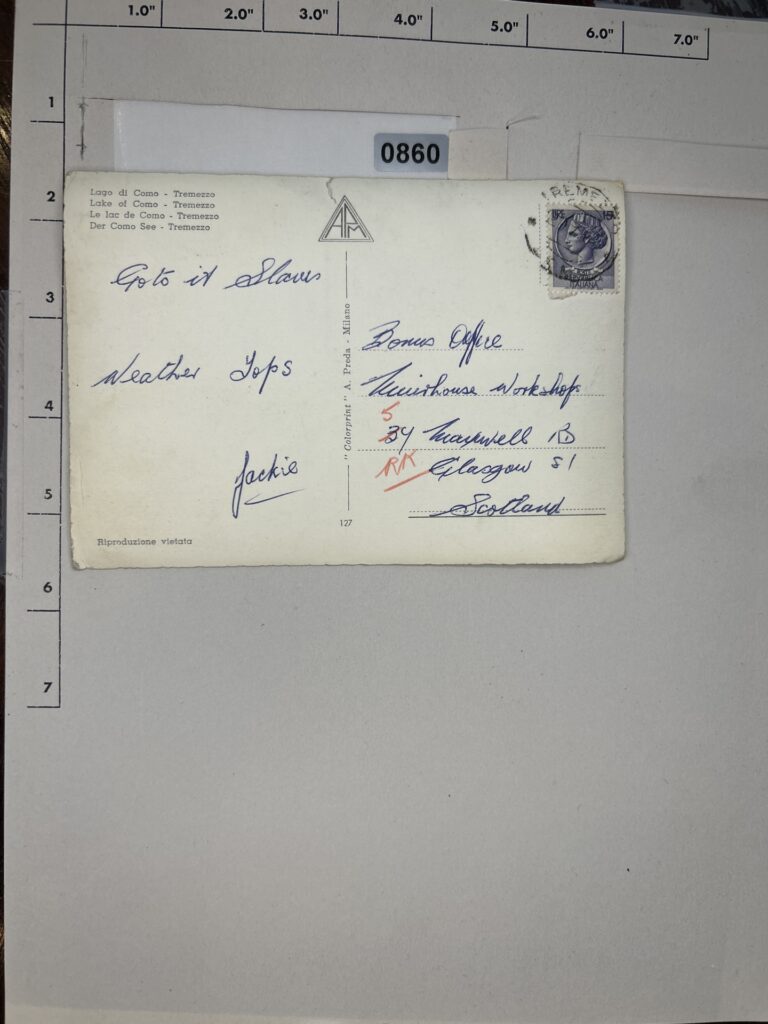 1.0" 2.0" 3.0" 4.0" 5.0" 6.0" 7.0"
1
2
3
4
5
6
7
0860
Lago di Como - Tremezzo
Lake of Como - Tremezzo
Le lac de Como - Tremezzo
Der Como See - Tremezzo
APM
TREME
ITALIANA
Goto it Slaves
Weather Tops
Jackie
"Colorprint" A. Preda - Milano
127
Riproduzione vietata
Bonus Office
Muirhouse Workshop
5
34 Maxwell RD
RK Glasgow S1
Scotland